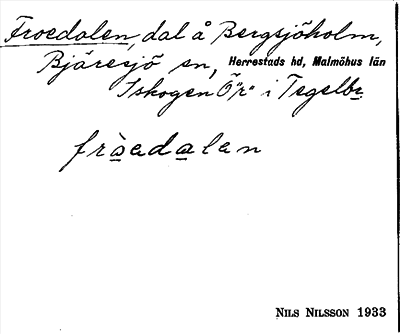 Froedalen, dal å Bergsjöholm,
Bjäresjö sn, Herrestads hd, Malmöhus län
I skogen Ö"r" i Tegelbr
fròədalen
NILS NILSSON 1933